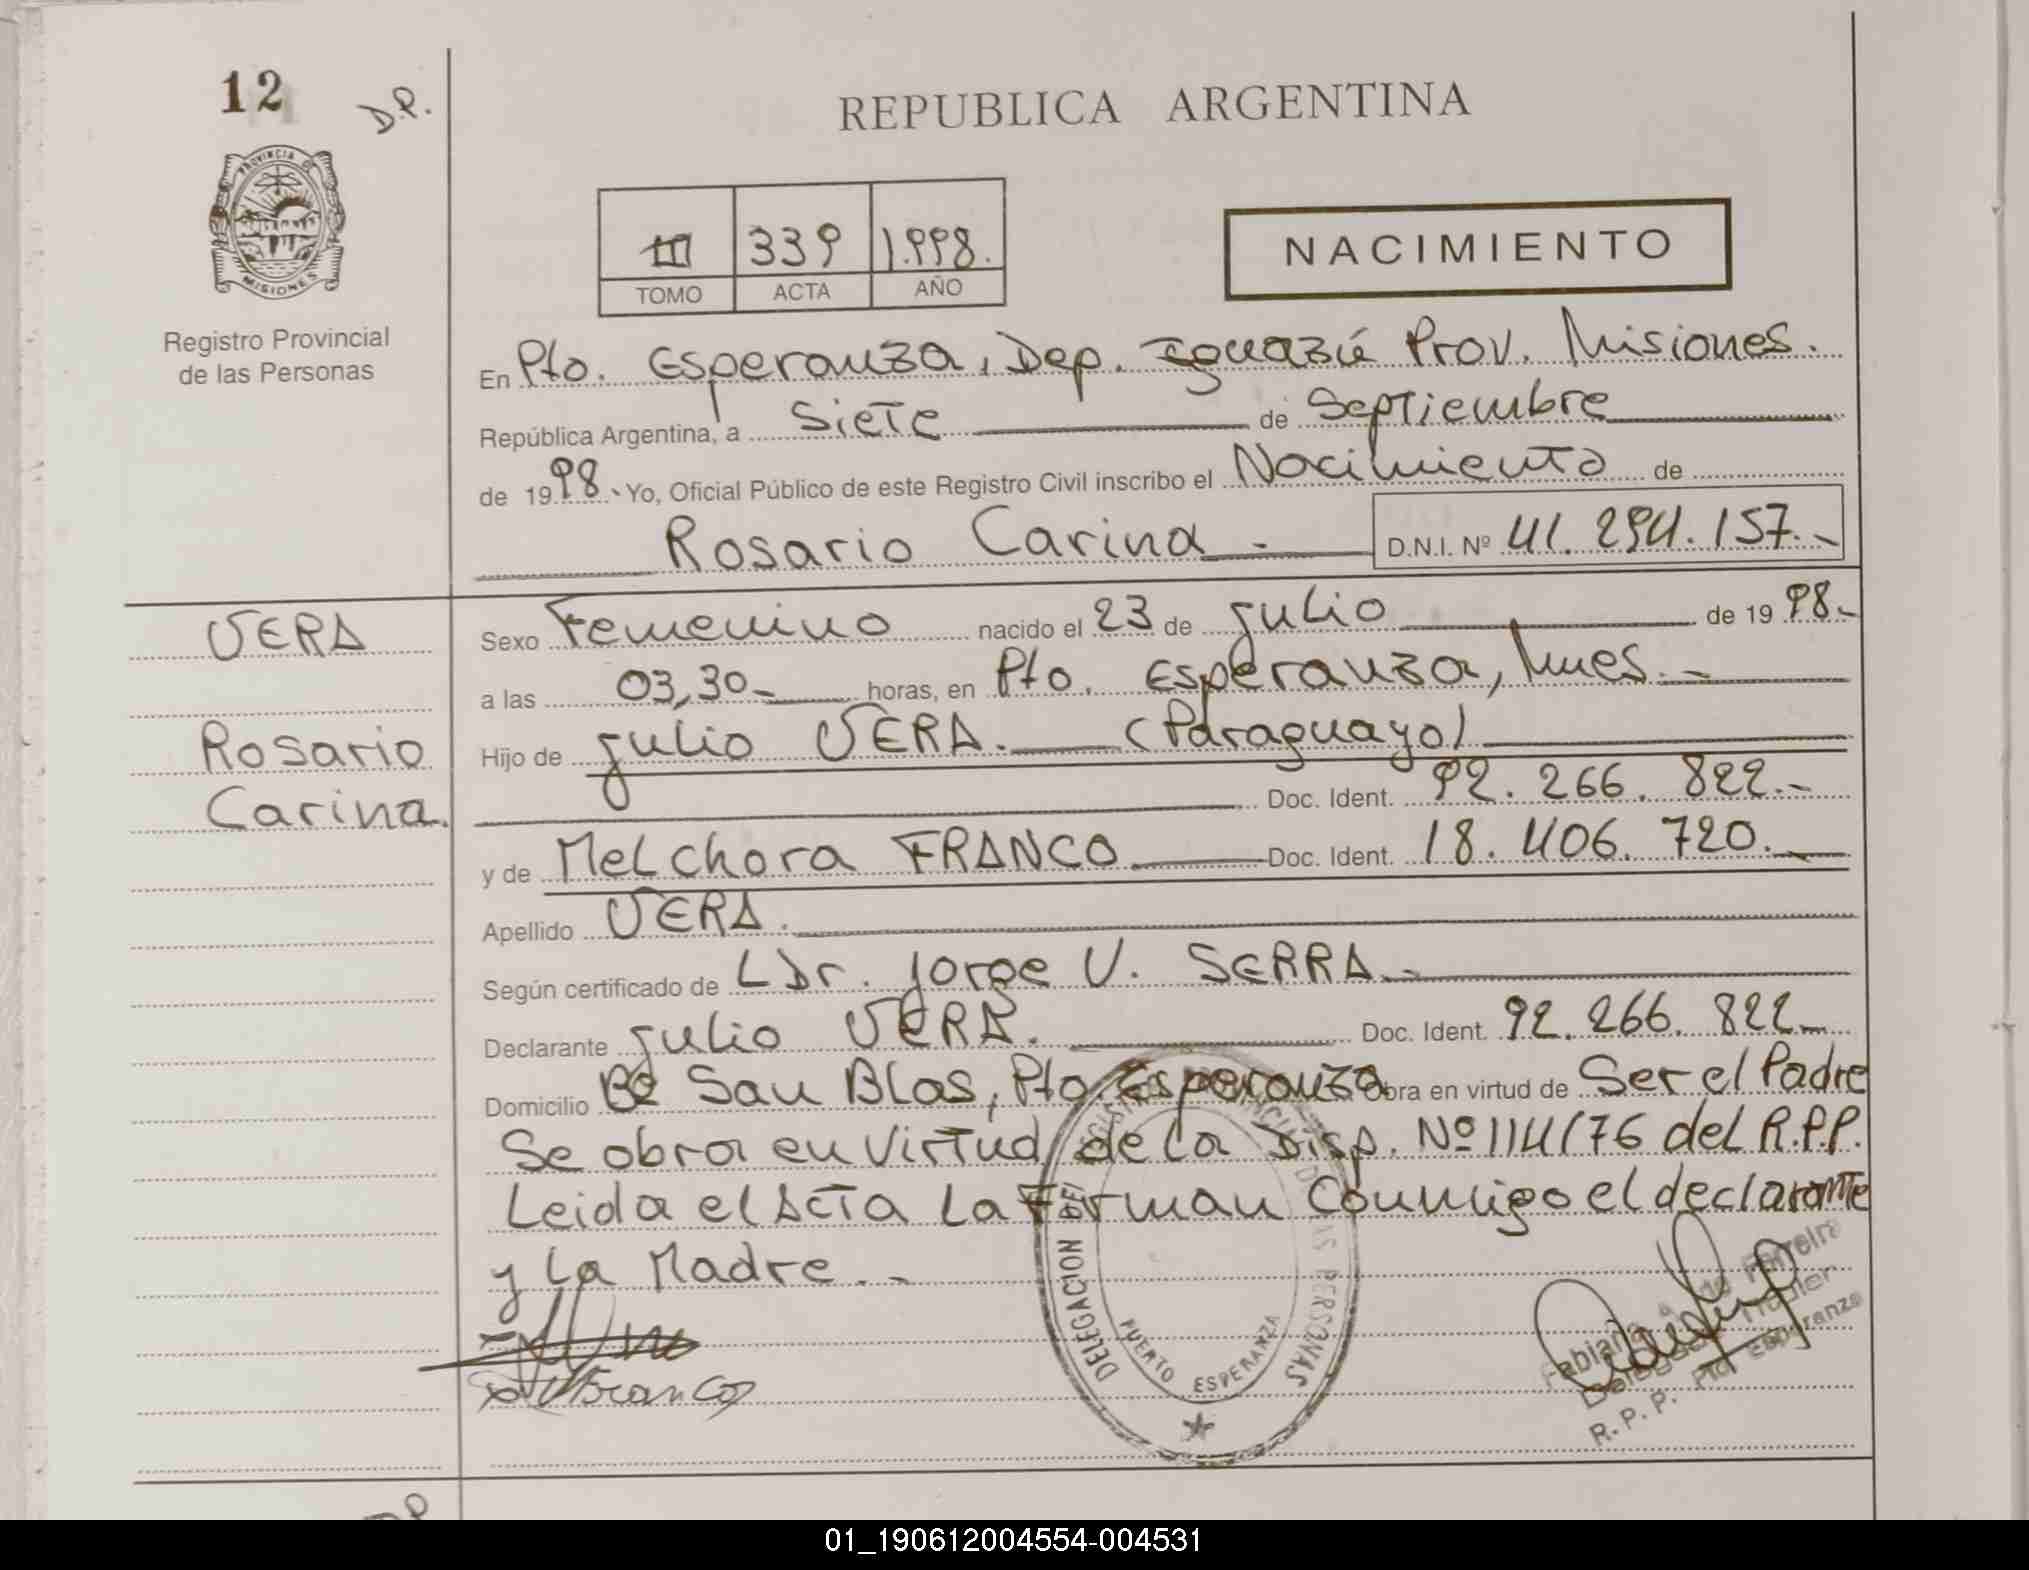 12
D.P.
REPUBLICA ARGENTINA
PROVINCIA DE
MISIONES
Registro Provincial
de las Personas
III 339 1.998.
TOMO ACTA AÑO
NACIMIENTO
En Pto. Esperanza, Dep. Iguazú Prov. Misiones.
República Argentina, a siete de Septiembre
de 1998.- Yo, Oficial Público de este Registro Civil inscribo el Nacimiento de
Rosario Carina - D.N.I. Nº 41.294.157.-
VERA
Rosario
Carina.
Sexo Femenino nacido el 23 de julio de 1998.-
a las 03,30- horas, en Pto. Esperanza, Mnes.-
Hijo de julio VERA. (Paraguayo)
Doc. Ident. 92.266.822.-
y de Melchora FRANCO Doc. Ident. 18.406.720.-
Apellido VERA.
Según certificado de L Dr. Jorge V. SERRA.-
Declarante julio VERA. Doc. Ident. 92.266.822.-
Domicilio Bº San Blas, Pto. Esperanza Obra en virtud de Ser el Padre
Se obra en virtud de la Disp. Nº 114/76 del R.P.P.
Leida el Acta La Forman Conmigo el declarante
y La Madre.-
Franco
DELEGACION DEL REGISTRO PROVINCIAL DE LAS PERSONAS
PUERTO ESPERANZA
Fabiana de Ferreira
R.P.P. Pto. Esperanza
DP
01_190612004554-004531